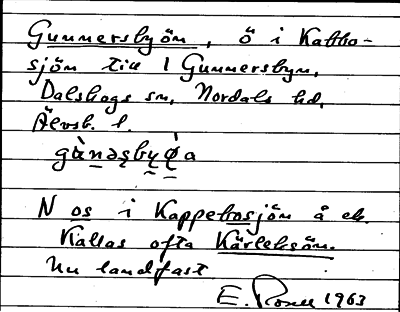 Gunnersbyön, ö i Kabbo-
sjön till 1 Gunnersbyn,
Dalskogs sn, Nordals hd,
Älvsb. l.
gànəsbyø̀a
N os i Kappebosjön å ek.
Kallas ofta Kärleksön.
Nu landfast
E. Rosell 1963